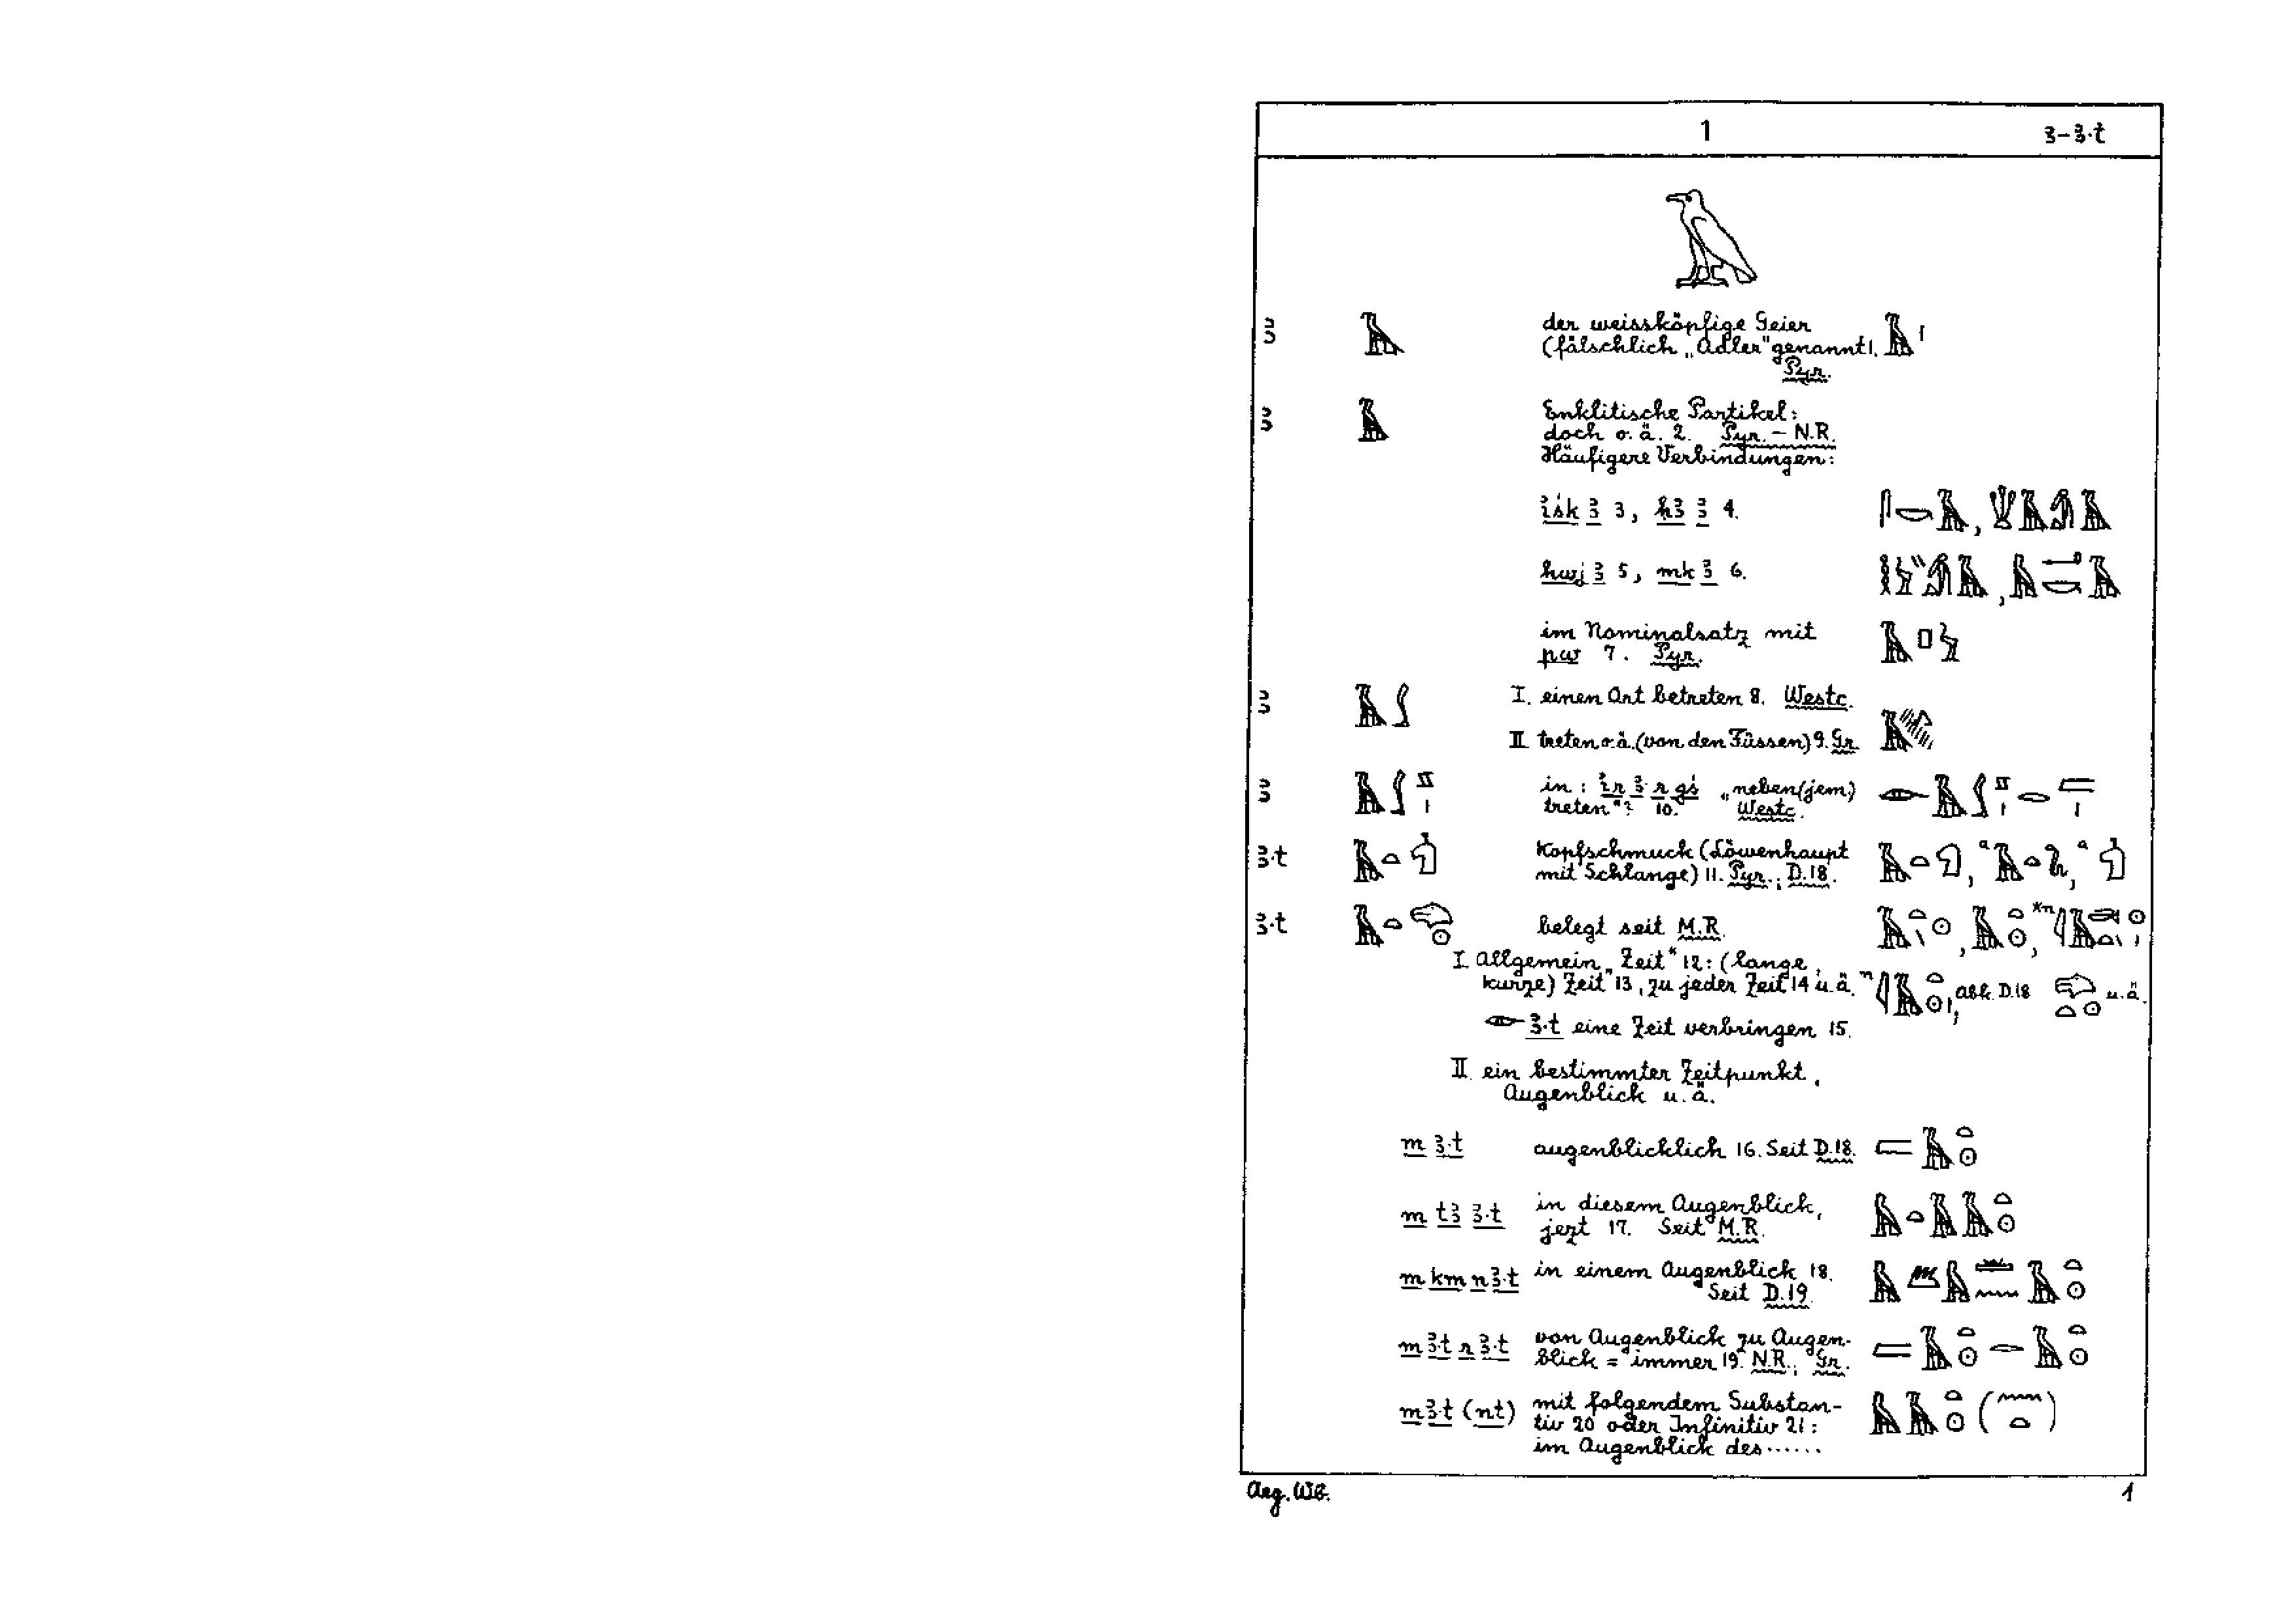 1 ꜣ–ꜣ.t
ꜣ 𓄿 der weissköpfige Geier
(fälschlich „Adler" genannt 1. 𓄿𓏤
Pyr.
ꜣ 𓄿 Enklitische Partikel:
doch o. ä. 2. Pyr. – N.R.
Häufigere Verbindungen:
isk ꜣ 3, hꜣ ꜣ 4.
hwj ꜣ 5, mk ꜣ 6.
im Nominalsatz mit 𓄿𓊪𓅱
pw 7. Pyr.
ꜣ 𓄿𓃀 I. einen Ort betreten 8. Westc.
II. treten o.ä. (von den Füssen) 9. Gr.
ꜣ in: ir ꜣ r gś „neben (jem)
treten"? 10. Westc.
ꜣ.t Kopfschmuck (Löwenhaupt
mit Schlange) 11. Pyr.; D.18.
ꜣ.t belegt seit M.R.
I. Allgemein „Zeit" 12: (lange,
kurze) Zeit 13, zu jeder Zeit 14 u. ä. abk. D.18 u. ä.
𓁹 ꜣ.t eine Zeit verbringen 15.
II. ein bestimmter Zeitpunkt,
Augenblick u. ä.
m ꜣ.t augenblicklich 16. Seit D.18. 𓐝𓄿𓏏𓇳
m tꜣ ꜣ.t in diesem Augenblick, 𓅓𓏏𓄿𓄿𓏏𓇳
jezt 17. Seit M.R.
m km n ꜣ.t in einem Augenblick 18. 𓅓𓆎𓅓𓈖𓄿𓏏𓇳
Seit D.19.
m ꜣ.t r ꜣ.t von Augenblick zu Augen- 𓐝𓄿𓏏𓇳𓂋𓄿𓏏𓇳
blick = immer 19. N.R.; Gr.
m ꜣ.t (nt) mit folgendem Substan- 𓅓𓄿𓏏𓇳(𓈖𓏏)
tiv 20 oder Infinitiv 21:
im Augenblick des ......
Aeg. Wb. 1